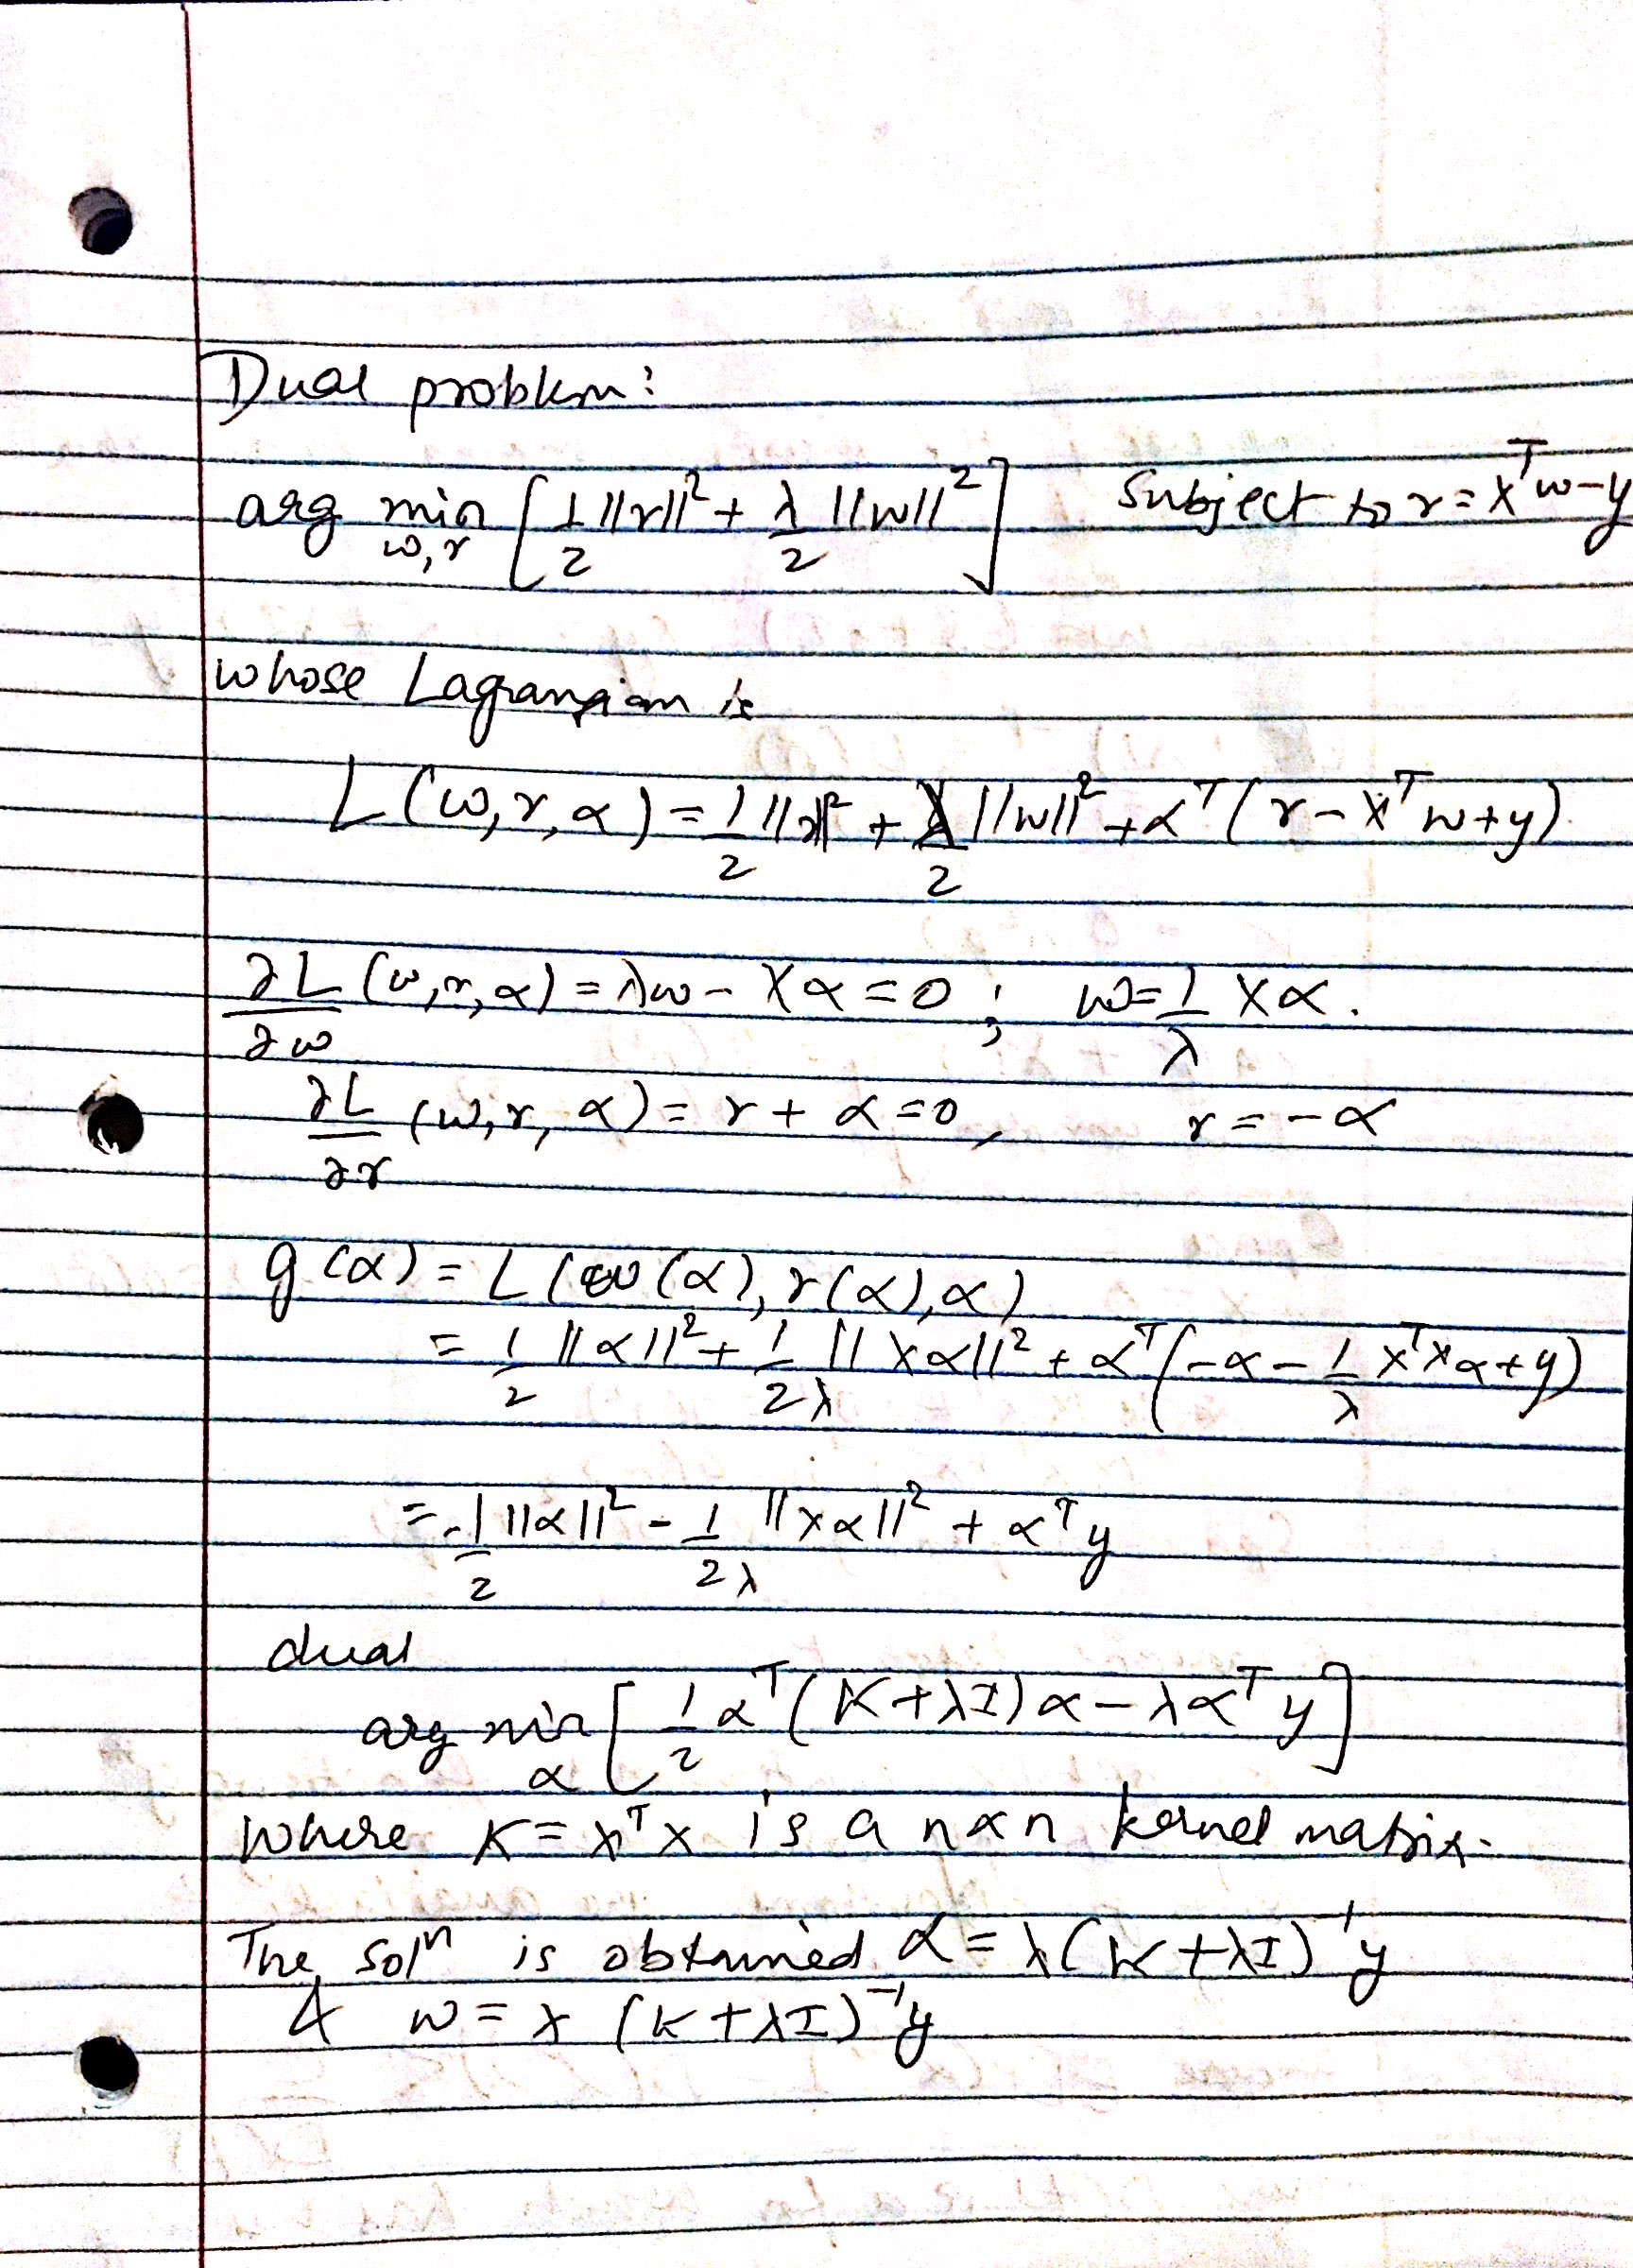 Dual problem:
arg min_{w,r} [ 1/2 ||r||² + λ/2 ||w||² ] Subject to r = X^T w - y
whose Lagrangian is
L(w,r,α) = 1/2 ||r||² + λ/2 ||w||² + α^T (r - X^T w + y)
∂L/∂w (w,r,α) = λw - Xα = 0 ; w = 1/λ Xα.
∂L/∂r (w,r,α) = r + α = 0, r = -α
g(α) = L(w(α), r(α), α)
= 1/2 ||α||² + 1/2λ ||Xα||² + α^T (-α - 1/λ X^T X α + y)
= -1/2 ||α||² - 1/2λ ||Xα||² + α^T y
dual
arg min_α [ 1/2 α^T (K + λI) α - λα^T y ]
where K = X^T X is a n×n kernel matrix.
The sol^n is obtained α = λ(K + λI)^-1 y
& w = X (K + λI)^-1 y